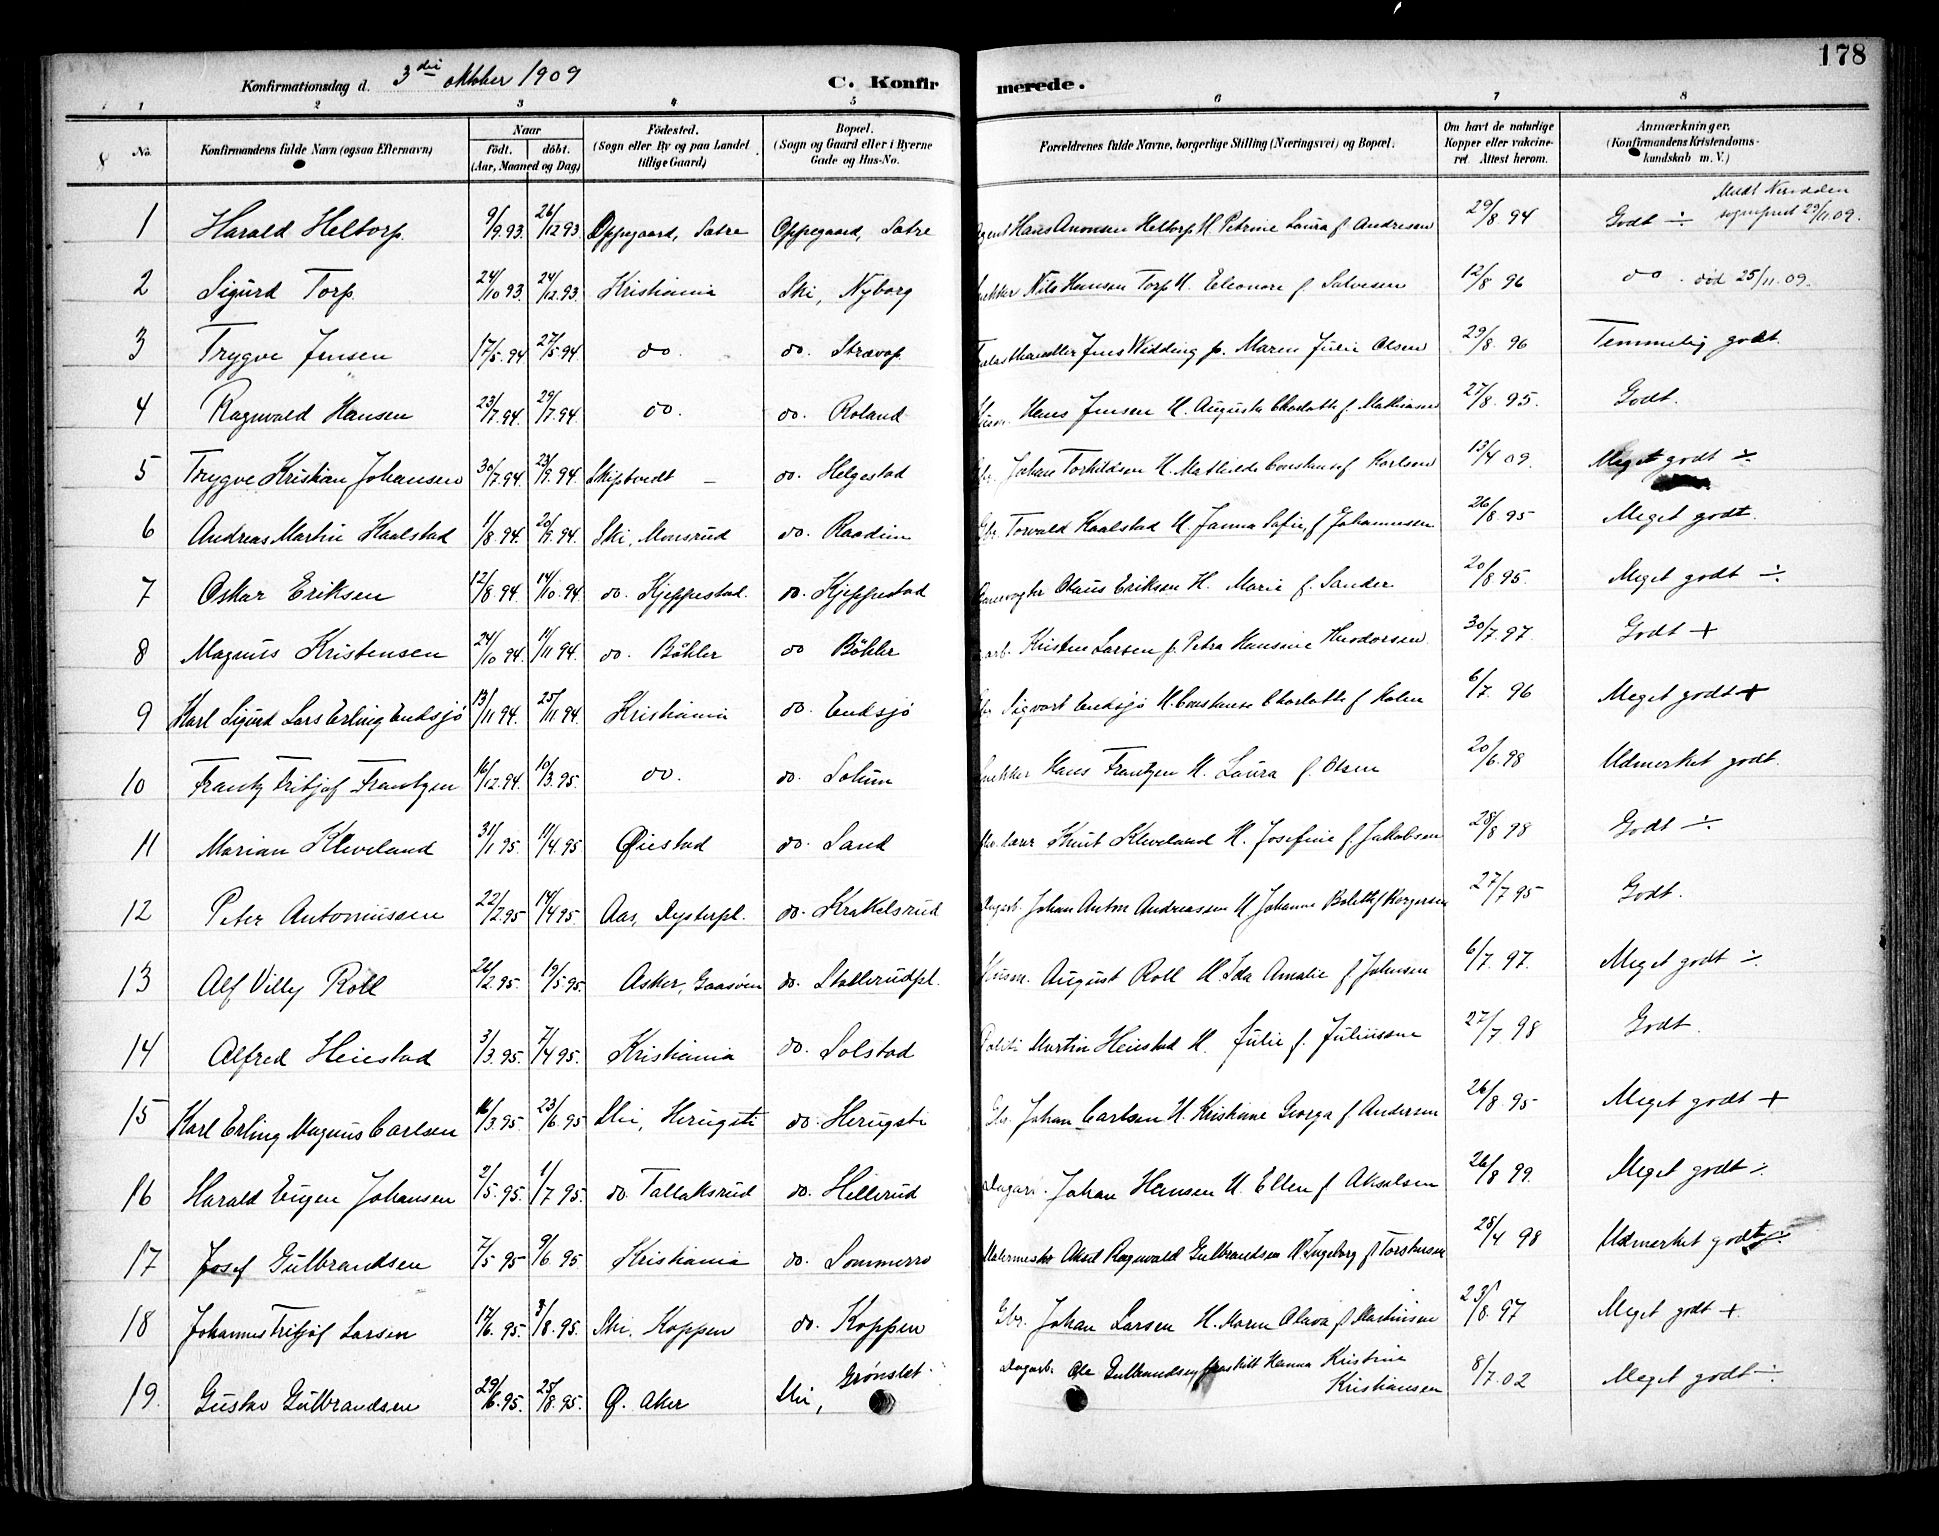 178
Konfirmationsdag d. 3die oktober 1909 C. Konfirmerede.
1 2 3 4 5 6 7 8
No. Konfirmandens fulde Navn (ogsaa Efternavn) Naar født. døbt. (Aar, Maaned og Dag) Födested. (Sogn eller By og paa Landet tillige Gaard) Bopæl. (Sogn og Gaard eller i Byerne Gade og Hus-No. Forældrenes fulde Navne, borgerlige Stilling (Næringsvei) og Bopæl. Om havt de naturlige Kopper eller vakcineret. Attest herom. Anmærkninger. (Konfirmandens Kristendomskundskab m. V.)
1 Harald Heltorp. 9/9.93. 26/12 93 Oppegaard, Sætre Oppegaard, Sætre Agent Hans Anonsen Heltorp H Petrine Laura f. Andresen 29/8 94 Godt ÷ 29/11.09.
2 Sigurd Torp. 24/10 93. 24/12.93 Kristiania Ski, Nyborg Nils Hansen Torp H. Eleonore f. Salvesen 12/8 96 do. død 25/11.09.
3 Trygve Jensen 17/5.94 27/5 94 do. do. Jens Widding p. Maren Julie Olsen 29/8.96 Temmelig godt.
4 Ragnvald Hansen 23/7.94. 29/7.94. do. do. Roland Husm. Hans Jensen H. Augusta Charlotte f. Mathiasen 27/8.95. Godt.
5 Trygve Kristian Johansen 30/7.94. 23/9.94. Skiptvedt – do. Helgestad Gbr. Johan Torkildsen H. Mathilde Constanse f Karlsen 13/4 09. Meget godt ÷
6 Andreas Martin Kaalstad 1/8.94. 20/9.94. Ski, Monsrud do. Raadim Gbr. Torvald Kaalstad H. Janna Sofie, f Johannesen 26/8.95 Meget godt.
7 Oskar Eriksen 12/8.94. 14/10.94 do. Kjeppestad. do. Kjeppestad Banevogter Olaus Eriksen H. Marie f. Sander 20/8 95. Meget godt ÷
8 Magnus Kristensen 24/10 94. 11/11 94. do. Bøhler do Bøhler arb. Kristen Larsen f. Petra Hansine Theodorsen 30/7.97. Godt +
9 Karl Sigurd Lars Erling Endsjø 13/11 94. 25/11 94. Kristiania do. Endsjø Gbr Sigvart Endsjø H. Constanse Charlotte f Holm 6/7. 96 Meget godt +
10 Frantz Fritjof Frantzen 16/12.94. 10/3.95. do. do. Solum Snekker Hans Frantzen H. Laura f. Olsen 20/6.98 Udmerket godt.
11 Marian Kleveland 31/1 95. 11/4.95 Øiestad do. Sand Knut Kleveland H. Josefine f. Jakobsen 28/8 98 Godt ÷
12 Peter Antoniussen 22/2.95 14/4 95 Aas, Dysterpl. do. Krakelsrud Dagarb. Johan Anton Andreassen H Johanne Bolette f Borgersen 27/7 95 Godt.
13 Alf Villy Roll 26/2.95. 19/5.95. Asker, Gaasøen do. Stallerudpl. Husm. August Roll H. Ida Amalie f Johnsen 6/7.97. Meget godt ÷
14 Alfred Heiestad 3/3.95. 7/4 95. Kristiania do. Solstad Politi Martin Heiestad H. Julie f. Juliussen 27/7.98 Godt.
15 Karl Erling Magnus Carlsen 16/3.95. 23/6.95 Ski, Herugsti do. Herugsti Gbr. Johan Carlsen H. Kristiane Georga f Andersen 26/8.95 Meget godt +
16 Harald Eugen Johansen 2/5.95. 1/7 95. do. Tallaksrud do. Hellerud Dagarb. Johan Hansen H. Ellen f Akselsen 26/8 99. Meget godt ÷
17 Josef Gulbrandsen 7/5 95 9/6 95. Kristiania do. Sommerro Malermester Aksel Ragnvald Gulbrandsen H Ingeborg f Torstensen 28/4 98 Udmerket godt ÷
18 Johannes Fritjof Larsen 17/6.95. 3/8.95. Ski, Koppen do. Koppen Gbr. Johan Larsen H. Maren Olava f Martinsen 23/8.97 Meget godt +
19. Gustav Gulbrandsen 29/6.95. 25/8.95. Ø. Aker Ski, Grønslet Dagarb. Ole Gulbrandsen fraskilt Hanna Kristine Kristiansen 8/7.02 Meget godt ÷